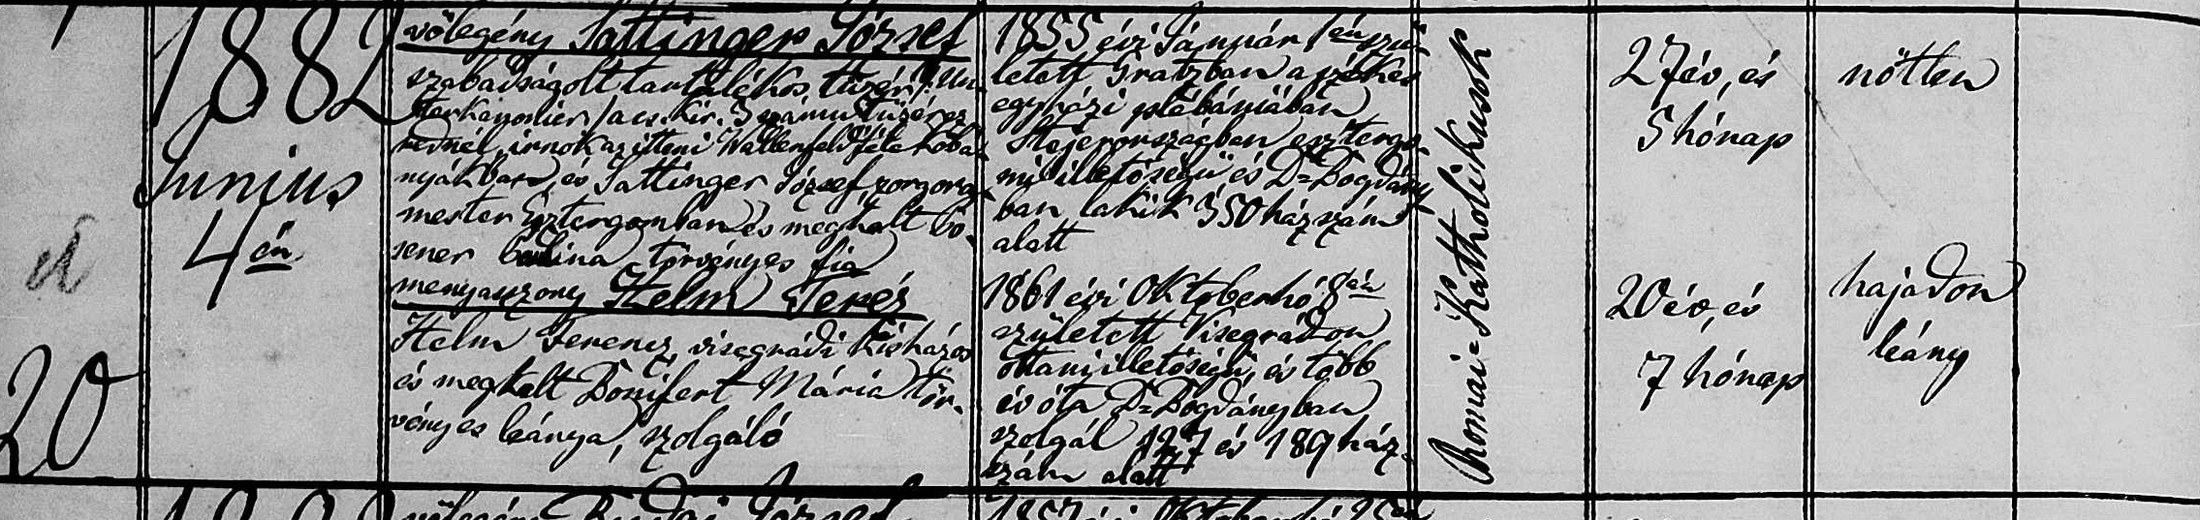 1882
Junius
4 én
20
völegény Sattinger József
szabadságolt tartalékos tüzér /: Un-
terkanonier / a cs. kir. 3 számu tüzérez-
rednél, irnok az itteni Wallenfeld féle köba-
nyákban, és Sattinger József, zongora
mester Esztergomban és meghalt
sener törvényes fia
menyasszony Helm Terés
Helm Ferencz, visegrádi kisházas
és meghalt Bonifert Mária tör-
vényes leánya, szolgáló
1855 évi Január 1én szü-
letett Gratzban a székes
egyházi plébániában
Stejerországban esztergo-
mi illetőségü és D=Bogdány
ban lakik 350 házszám
alatt
1861 évi Októberhó 8án
született Visegrádon
ottani illetőségü, és több
év óta D=Bogdányban
szolgál 127 és 189 ház-
szám alatt
Romai=Katholikusok
27 év, és
5 hónap
20 év, és
7 hónap
nötlen
hajadon
leány
völegény Budai József